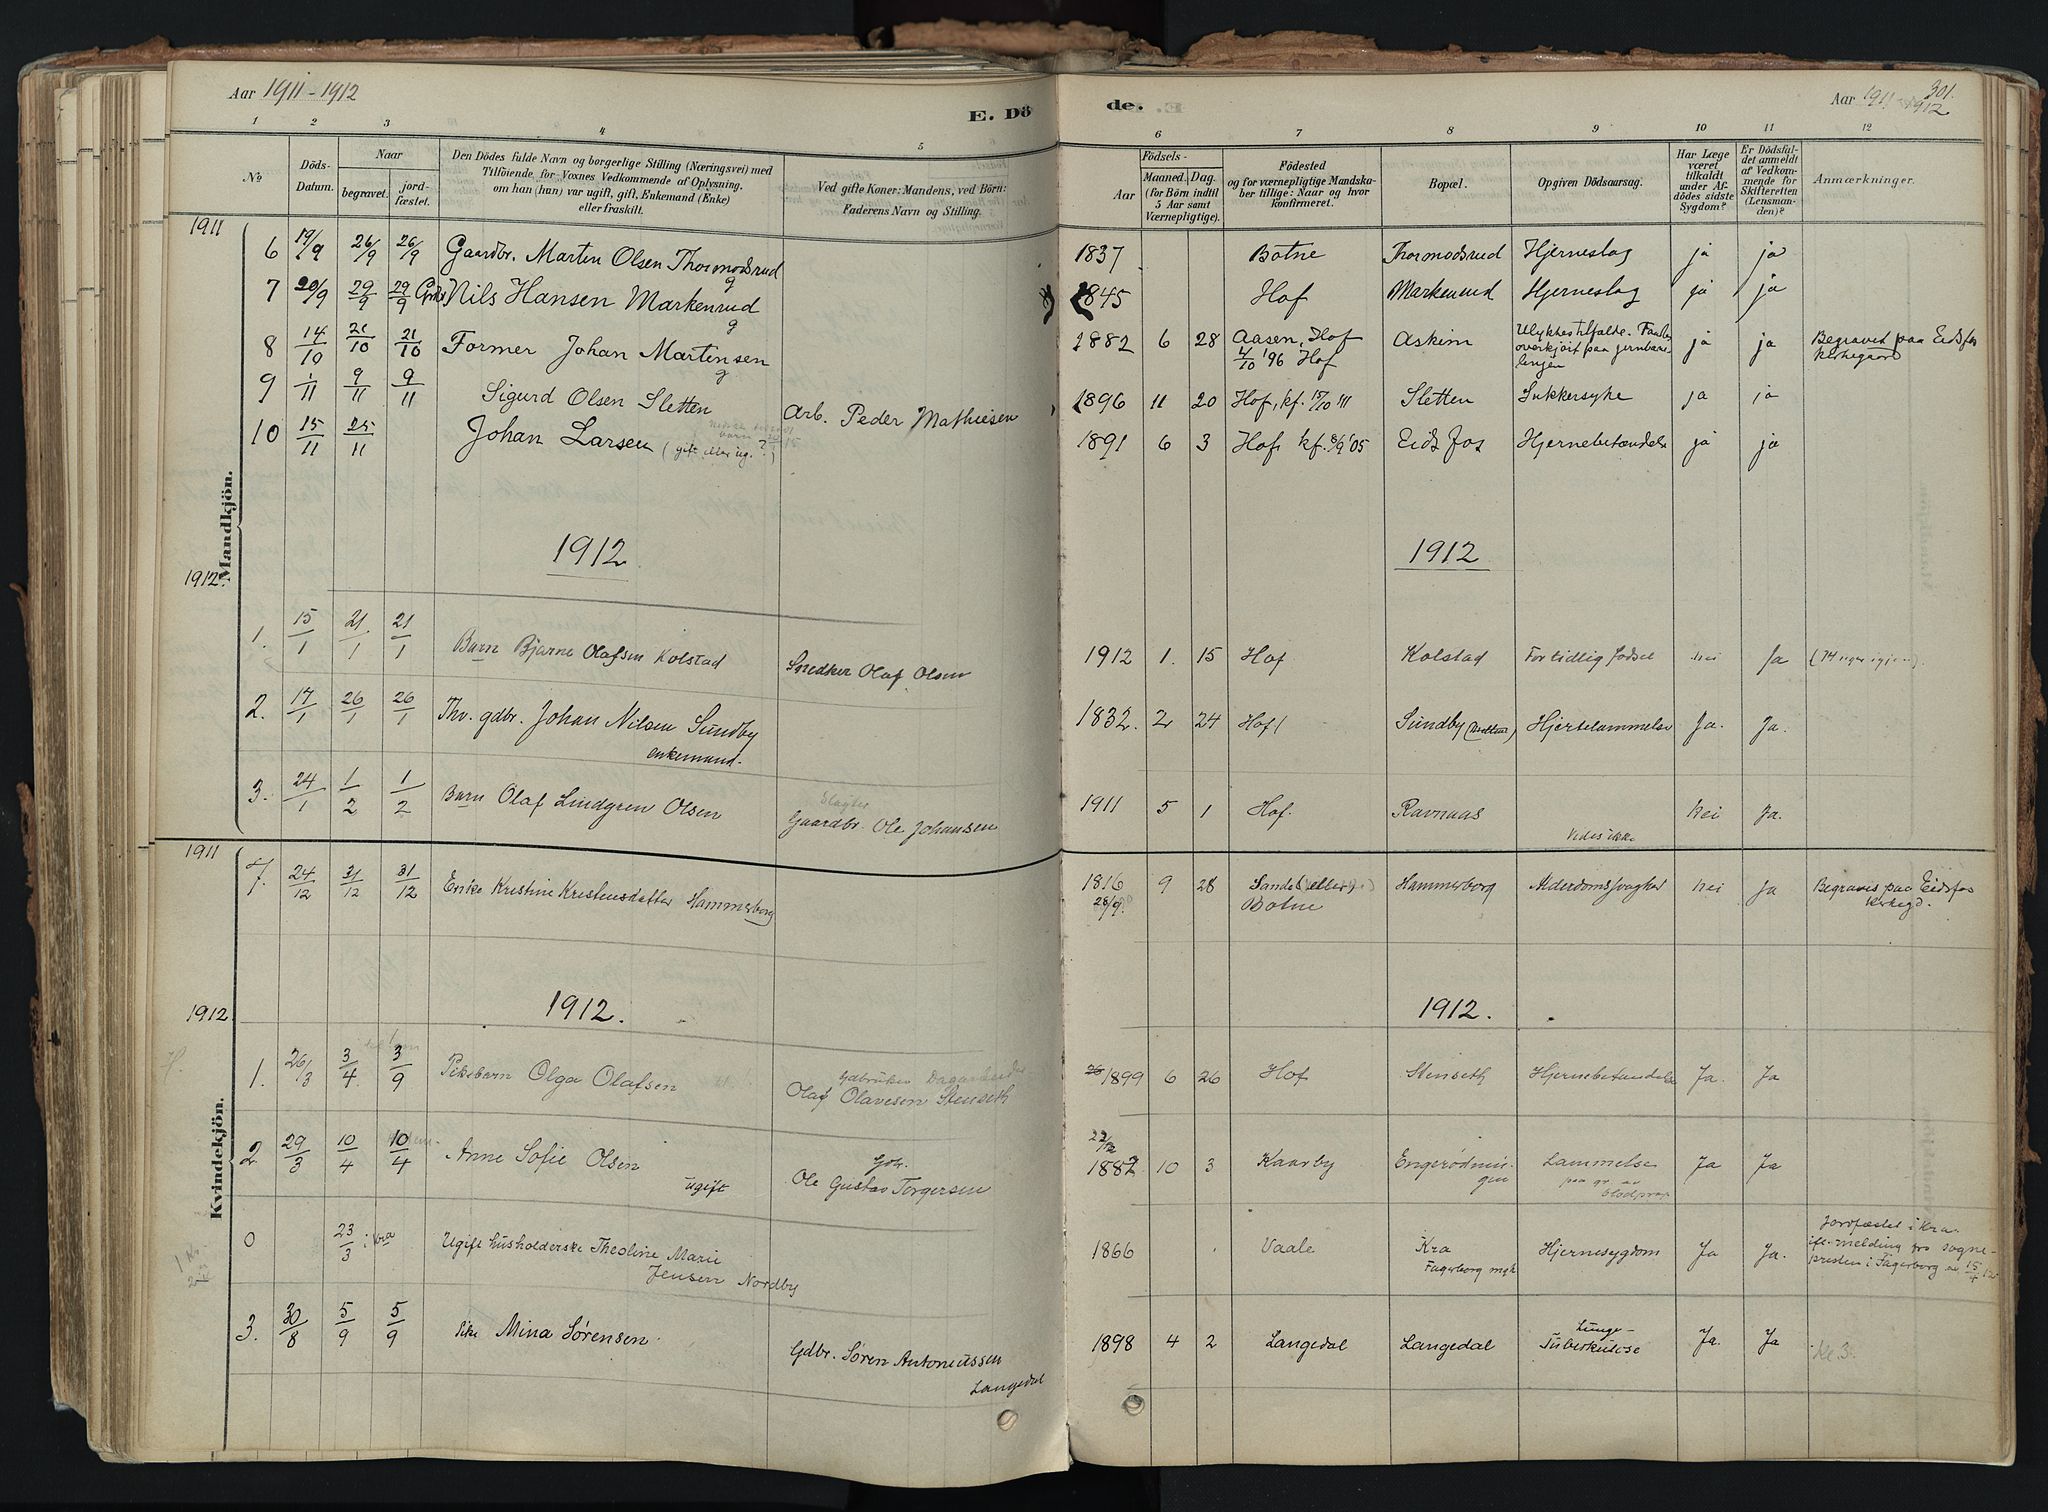 Aar 1911-1912
E. Dö
de.
Aar 1911-1912
301.
1 2 3 4 5 6 7 8 9 10 11 12
No
Döds-Datum.
Naar
begravet.
jordfæstet.
Den Dödes fulde Navn og borgerlige Stilling (Næringsvei) med
Tilföiende, for Voxnes Vedkommende af Oplysning,
om han (hun) var ugift, gift, Enkemand (Enke)
eller fraskilt.
Ved gifte Koner: Mandens, ved Börn:
Faderens Navn og Stilling.
Födsels-
Aar
Maaned. Dag.
(for Börn indtil
5 Aar samt
Værnepligtige).
Födested
og for værnepligtige Mandskaber
tillige: Naar og hvor
konfirmeret.
Bopæl.
Opgiven Dödsaarsag.
Har Læge
været
tilkaldt
under Afdödes
sidste
Sygdom?
Er Dödsfaldet
anmeldt
af Vedkommende
for
Skifteretten
(Lensmanden)?
Anmærkninger.
Mandkjön.
1911
6 19/9 26/9 26/9 Gaardbr. Marten Olsen Thormodsrud g 1837 Botne Thormodsrud Hjerneslag ja ja
7 20/9 29/9 29/9 Nils Hansen Markenrud g 1845 Hof Markenrud Hjerneslag ja ja
8 14/10 21/10 21/10 Former Johan Martensen g 1882 6 28 Aasen, Hof
4/10 '96 Hof Askim Ulykkestilfælde.
overkjørt paa jernbanelinjen ja ja Begravet paa Eidsfos
Kirkegaard
9 1/11 9/11 9/11 Sigurd Olsen Sletten Arb. Peder Mathiesen 1896 11 20 Hof, kf. 15/10 '11 Sletten Sukkersyke ja ja
10 15/11 25/11 Johan Larsen (gift eller ug.?) 1891 6 3 Hof, kf. 8/9 '05 Eidsfos Hjernebetændelse ja ja
1912 1912
1912
1. 15/1 21/1 21/1 Barn Bjarne Olafsen Kolstad Snedker Olaf Olsen 1912 1. 15 Hof Kolstad For tidlig fødsel nei Ja
2. 17/1 26/1 26/1 Thv. gdbr. Johan Nilsen Sundby
enkemand. 1832. 2 24 Hof Sundby Hjertelammelse Ja. Ja.
3. 24/1 1/2 1/2 Barn Olaf Lindgren Olsen Slagter
Gaardbr. Ole Johansen 1911 5 1 Hof. Ravnaas Vides ikke nei Ja.
Kvindekjön.
1911
7. 24/12 31/12 31/12 Enke Kristine Kristensdatter Hammerborg 1816
28/9. 9 28 Sande (eller)
Botne Hammerborg Alderdomssvaghet nei Ja Begraves paa Eidsfos
Kirkegd.
1912. 1912.
1912
1. 26/3 3/4 3/9 Pikebarn Olga Olafsen Gdbruker Dagarbeider
Olaf Olavesen Stenseth 1899 6 26 Hof Stenseth Hjernebetændelse Ja. Ja
2 29/3 10/4 10/4 Anne Sofie Olsen
ugift Gdbr.
Ole Gustav Torgersen 1882 10 3 Kaarby Engerødmingen Lammelse
paa gr. av
blodprop Ja Ja
0 23/3 i Kra Ugift husholderske Theoline Marie
Jensen Nordby 1866 Vaale Kra
Fagerborg mgh Hjernesygdom Ja Ja. Jordfæstet i Kra.
ifl. melding fra sognepresten
i Fagerborg av 15/4 12
3. 30/8 5/9 5/9 Pike Mina Sørensen Gdbr. Søren Antoniussen
Langedal 1898 4 2 Langedal Langedal Lunge-
Tuberkulose Ja. Ja